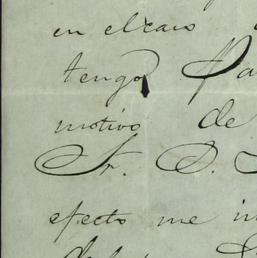 en el caso
tengo Pa
motivo de
Sr. D.
efecto me in